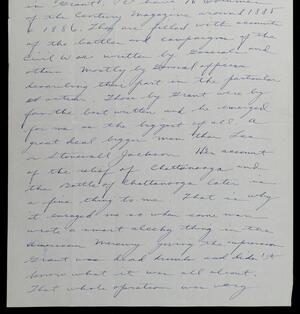 in Grant. I have 16 volumes
of the Century Magazine around 1885
1886. They are filled with accounts
of the battles and campaigns of the
Civil War written by Generals and
others. Mostly by General officers
describing their part in the particular
action. Those by Grant were by
far the best written and he emerged
for me as the biggest of all. A
great deal bigger man than Lee
or Stonewall Jackson. His account
of the relief of Chattanooga and
the Battle of Chattanooga later is
a fine thing to me. That is why
it enraged me so when some man
wrote a smart alecky thing in the
American Mercury giving the impression
Grant was dead drunk and didn't
know what it was all about.
That whole operation was very